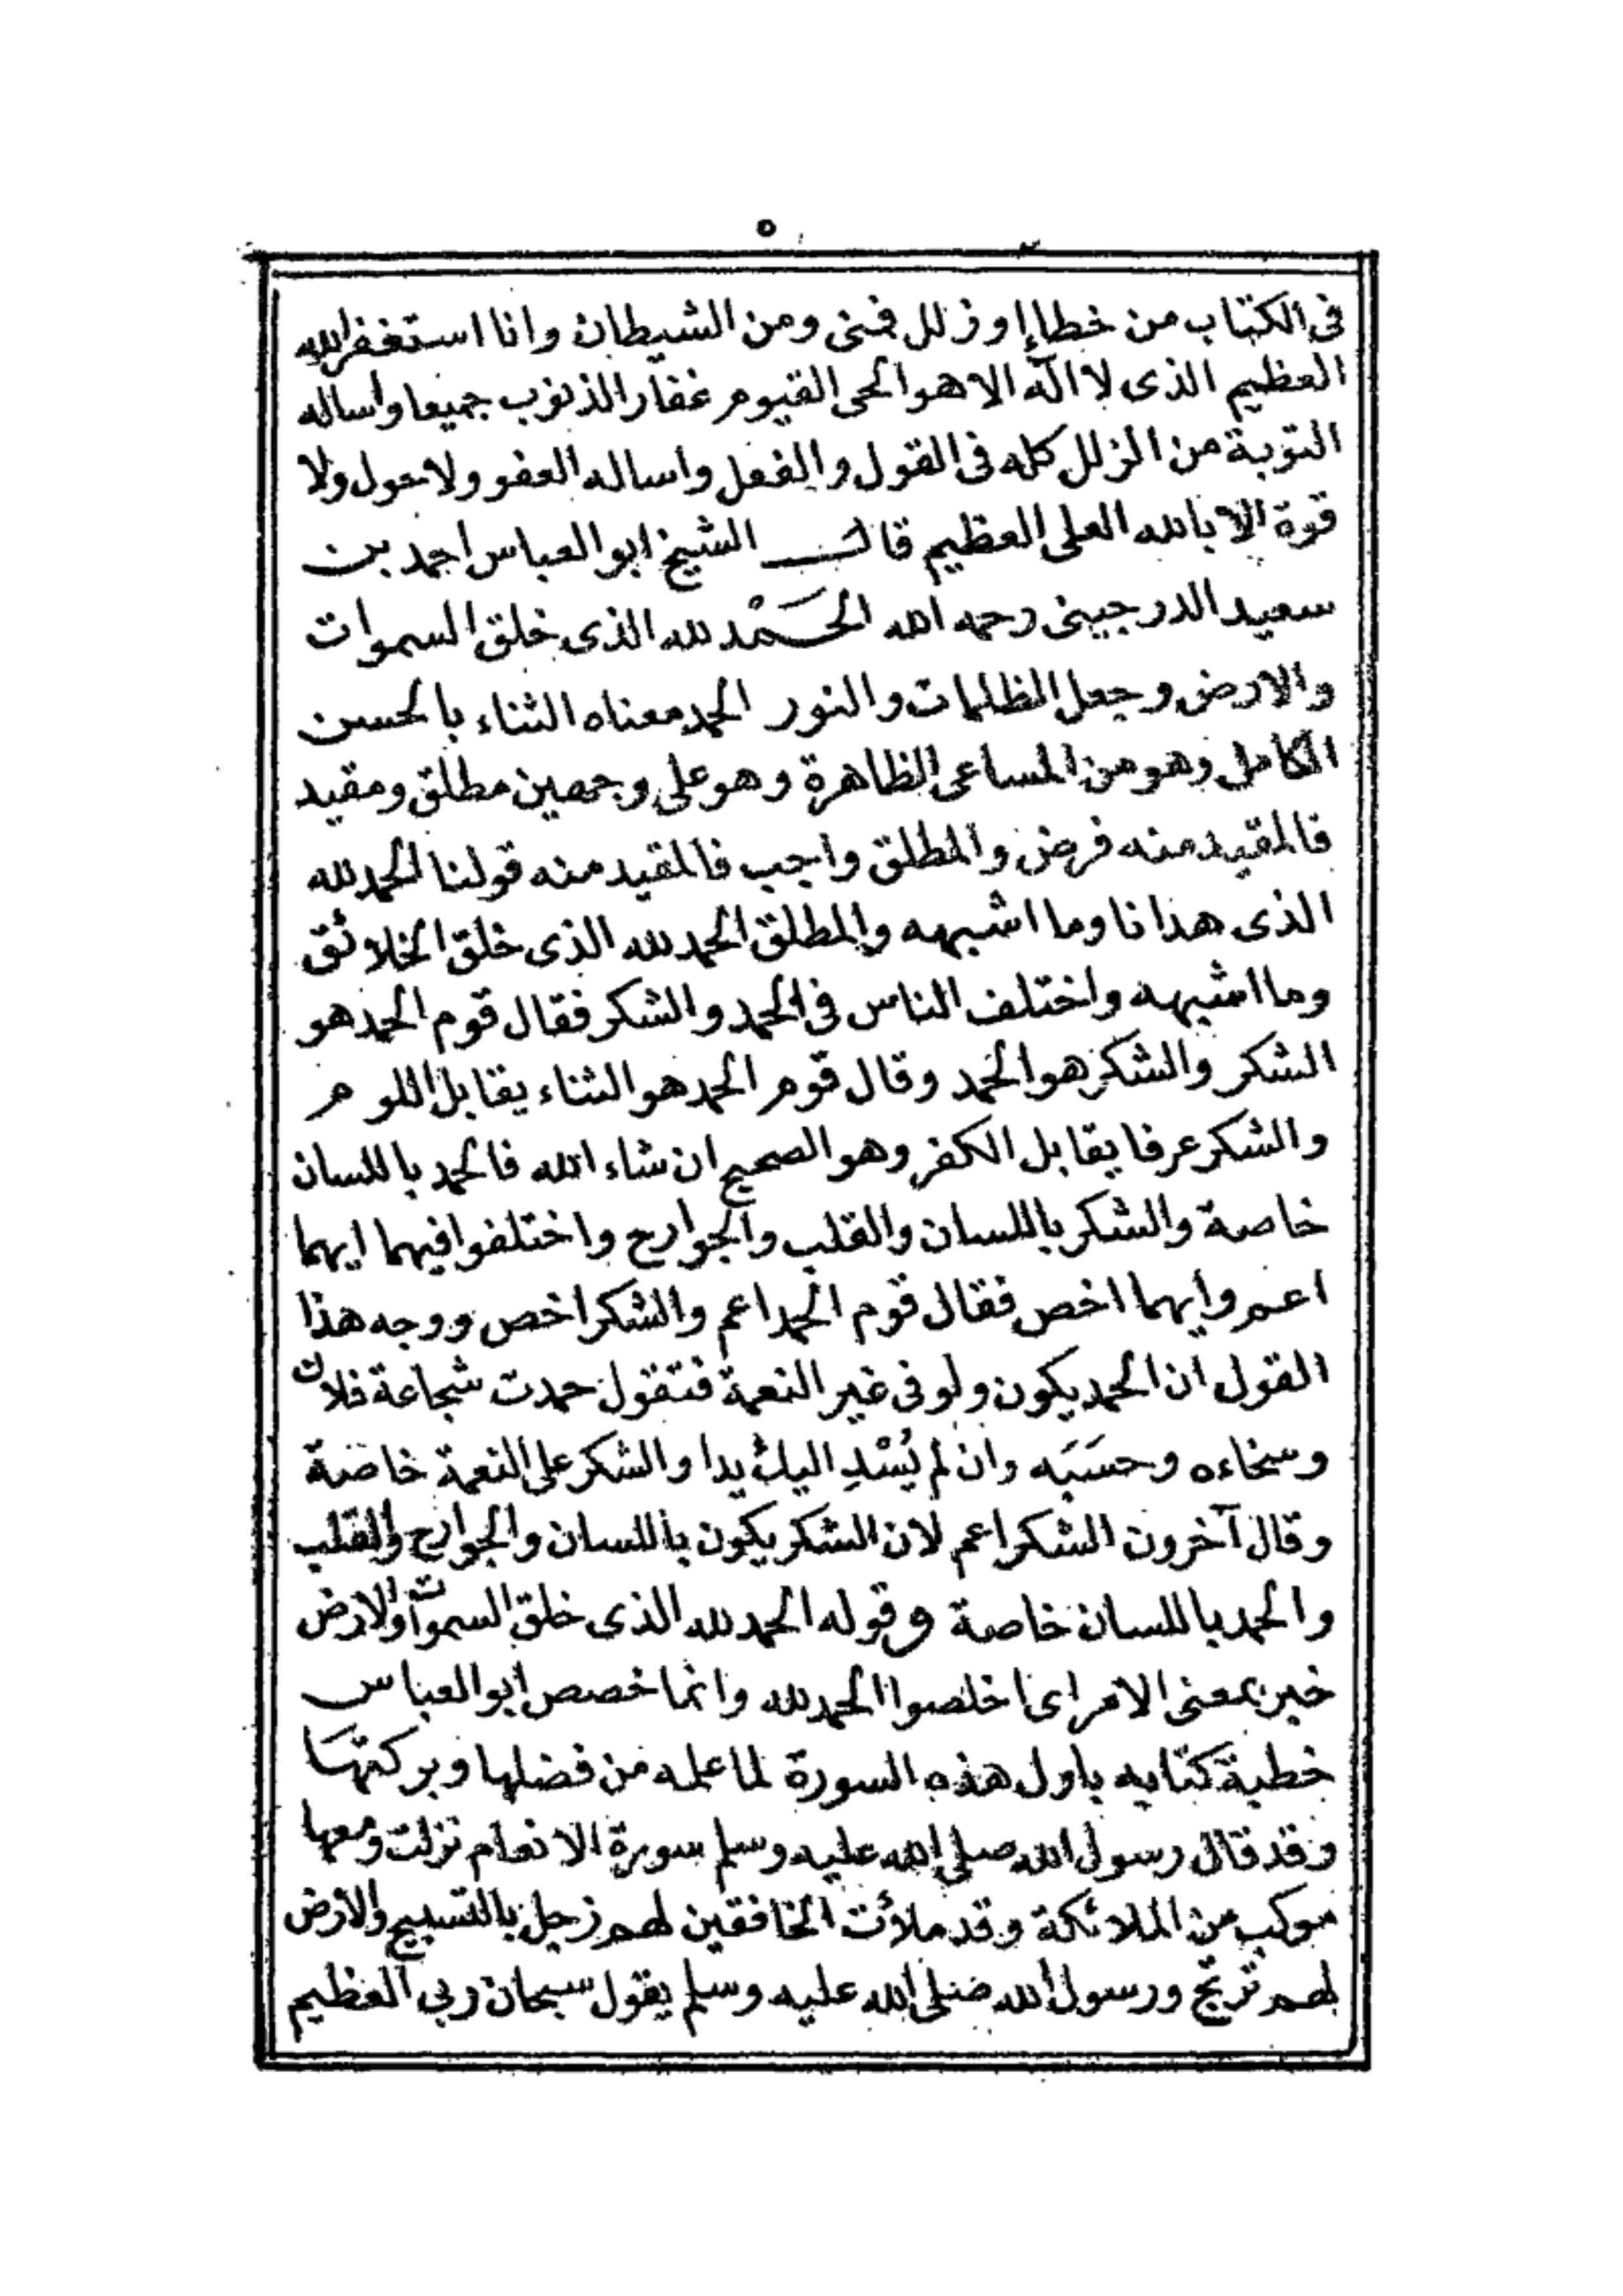 ٥
فى الكتاب من خطاإ او زلل فمنى ومن الشيطان وانا استغفر الله
العظيم الذى لا اله الا هو الحى القيوم غفار الذنوب جميعا واساله
التوبة من الزلل كله فى القول والفعل واساله العفو ولا حول ولا
قوة الا بالله العلى العظيم قال الشيخ ابو العباس احمد بن
سعيد الدرجينى رحمه الله الحَمْد لله الذى خلق السموات
والارض وجعل الظلمات والنور الحمد معناه الثناء بالحسن
الكامل وهو من المساعى الظاهرة وهو على وجهين مطلق ومقيد
فالمقيد منه فرض والمطلق واجب فالمقيد منه قولنا الحمد لله
الذى هدانا وما اشبهه والمطلق الحمد لله الذى خلق الخلائق
وما اشبهه واختلف الناس فى الحمد والشكر فقال قوم الحمد هو
الشكر والشكر هو الحمد وقال قوم الحمد هو الثناء يقابل اللوم
والشكر عرفا يقابل الكفر وهو الصحيح ان شاء الله فالحمد باللسان
خاصة والشكر باللسان والقلب والجوارح واختلفوا فيهما ايهما
اعم وأيهما اخص فقال قوم الحمد اعم والشكر اخص ووجه هذا
القول ان الحمد يكون ولو فى غير النعمة فتقول حمدت شجاعة فلان
وسخاءه وحسَبَه وان لم يُسْدِ اليك يدا والشكر على النعمة خاصة
وقال آخرون الشكر اعم لان الشكر يكون باللسان والجوارح والقلب
والحمد باللسان خاصة وقوله الحمد لله الذى خلق السموات والارض
خبر بمعنى الامر اى اخلصوا الحمد لله وانما خصص ابو العباس
خطبة كتابه باول هذه السورة لما علمه من فضلها وبركتهَا
وقد قال رسول الله صلى الله عليه وسلم سورة الانعام نزلت ومعها
موكب من الملائكة وقد ملأت الخافقين لهم زجل بالتسبيح والارض
لهم ترتج ورسول الله صلى الله عليه وسلم يقول سبحان ربى العظيم